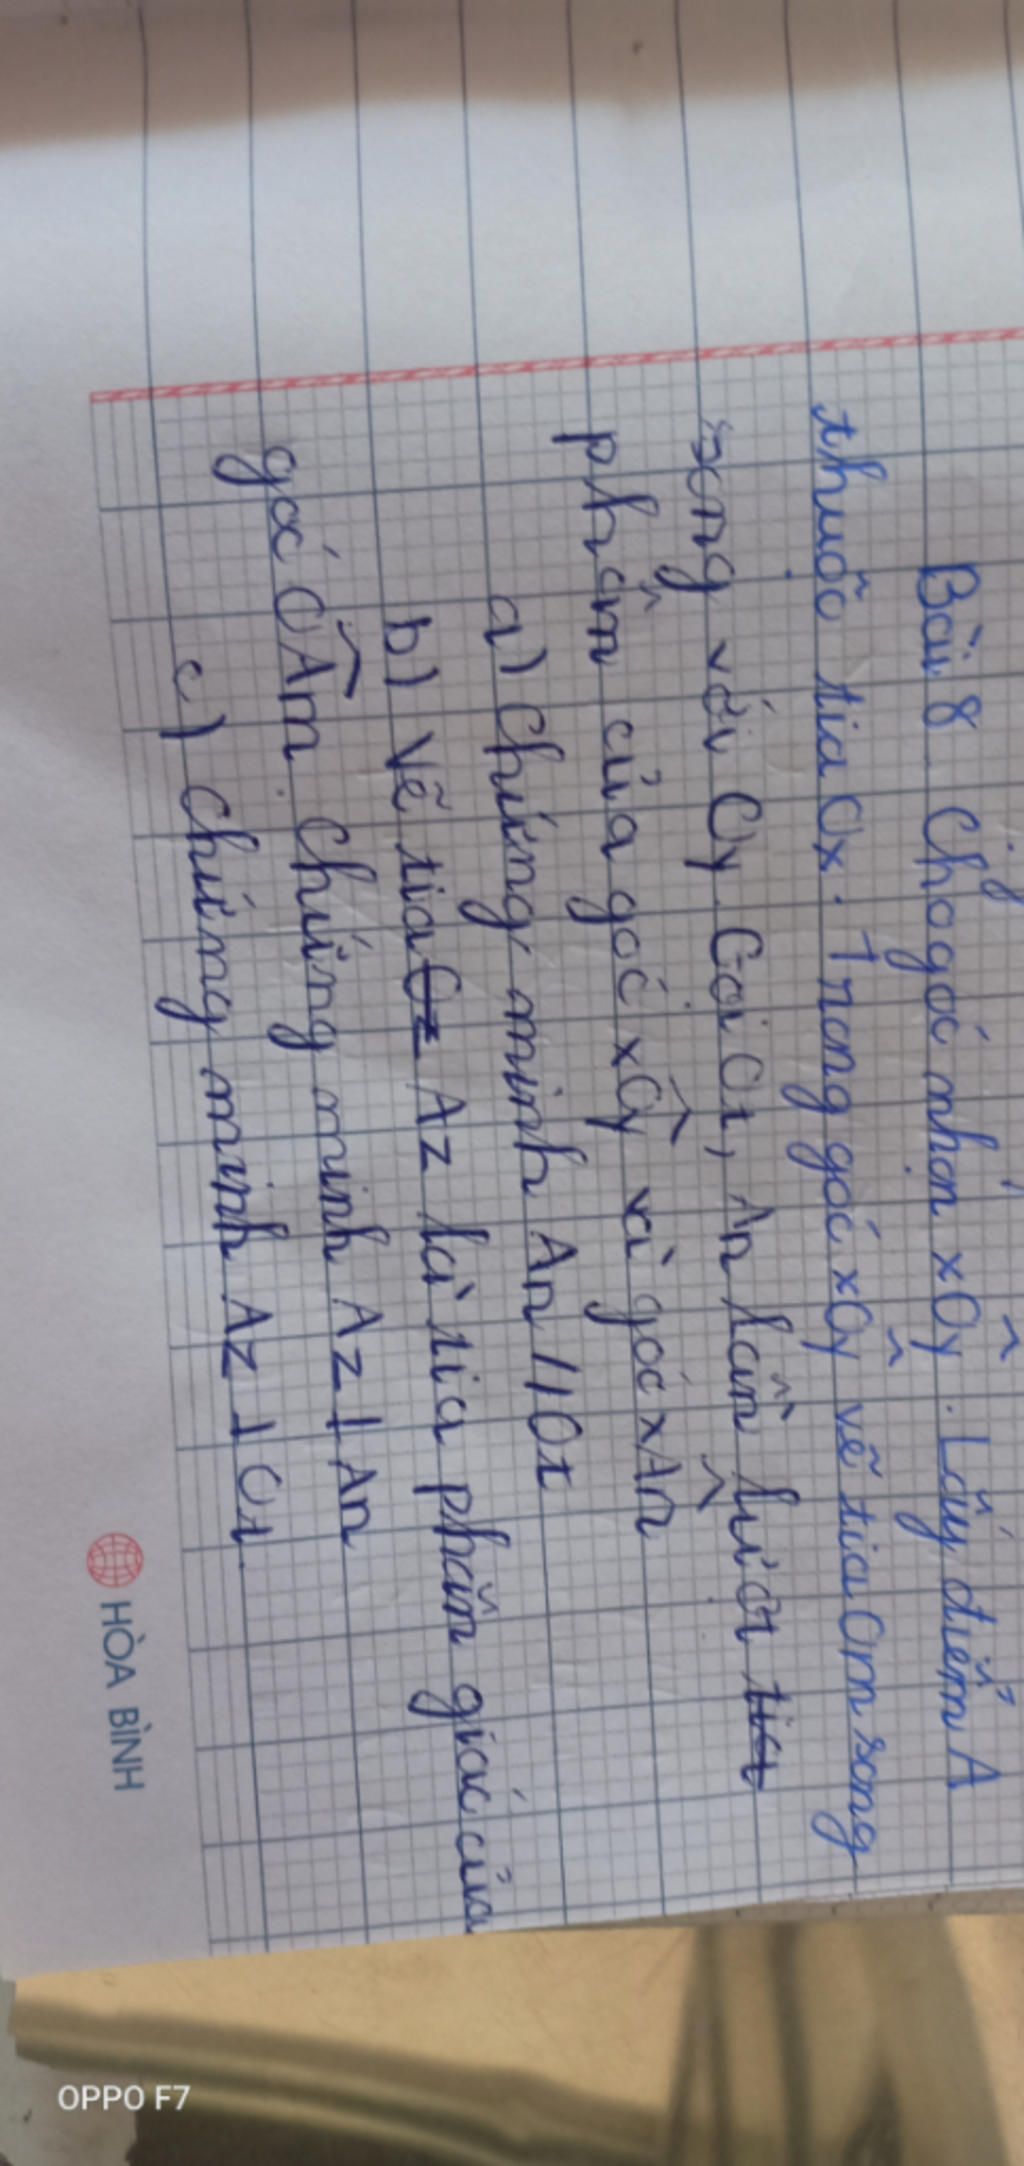 Bài 8 Cho góc nhọn xOy. Lấy điểm A
thuộc tia Ox. Trong góc xOy vẽ tia Om song
song với Oy. Gọi Ot, An lần lượt tia
phân của góc xOy và góc xAn
a) Chứng minh An // Ot
b) Vẽ tia Oz Az là tia phân giác của
góc OAm. Chứng minh Az ⊥ An
c) Chứng minh Az ⊥ Ot.
HÒA BÌNH
OPPO F7